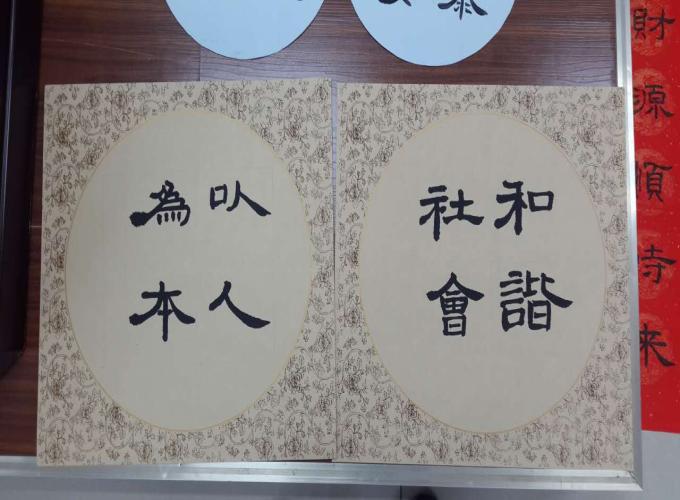 和諧
社會
以人
為本
財源順時来
泰